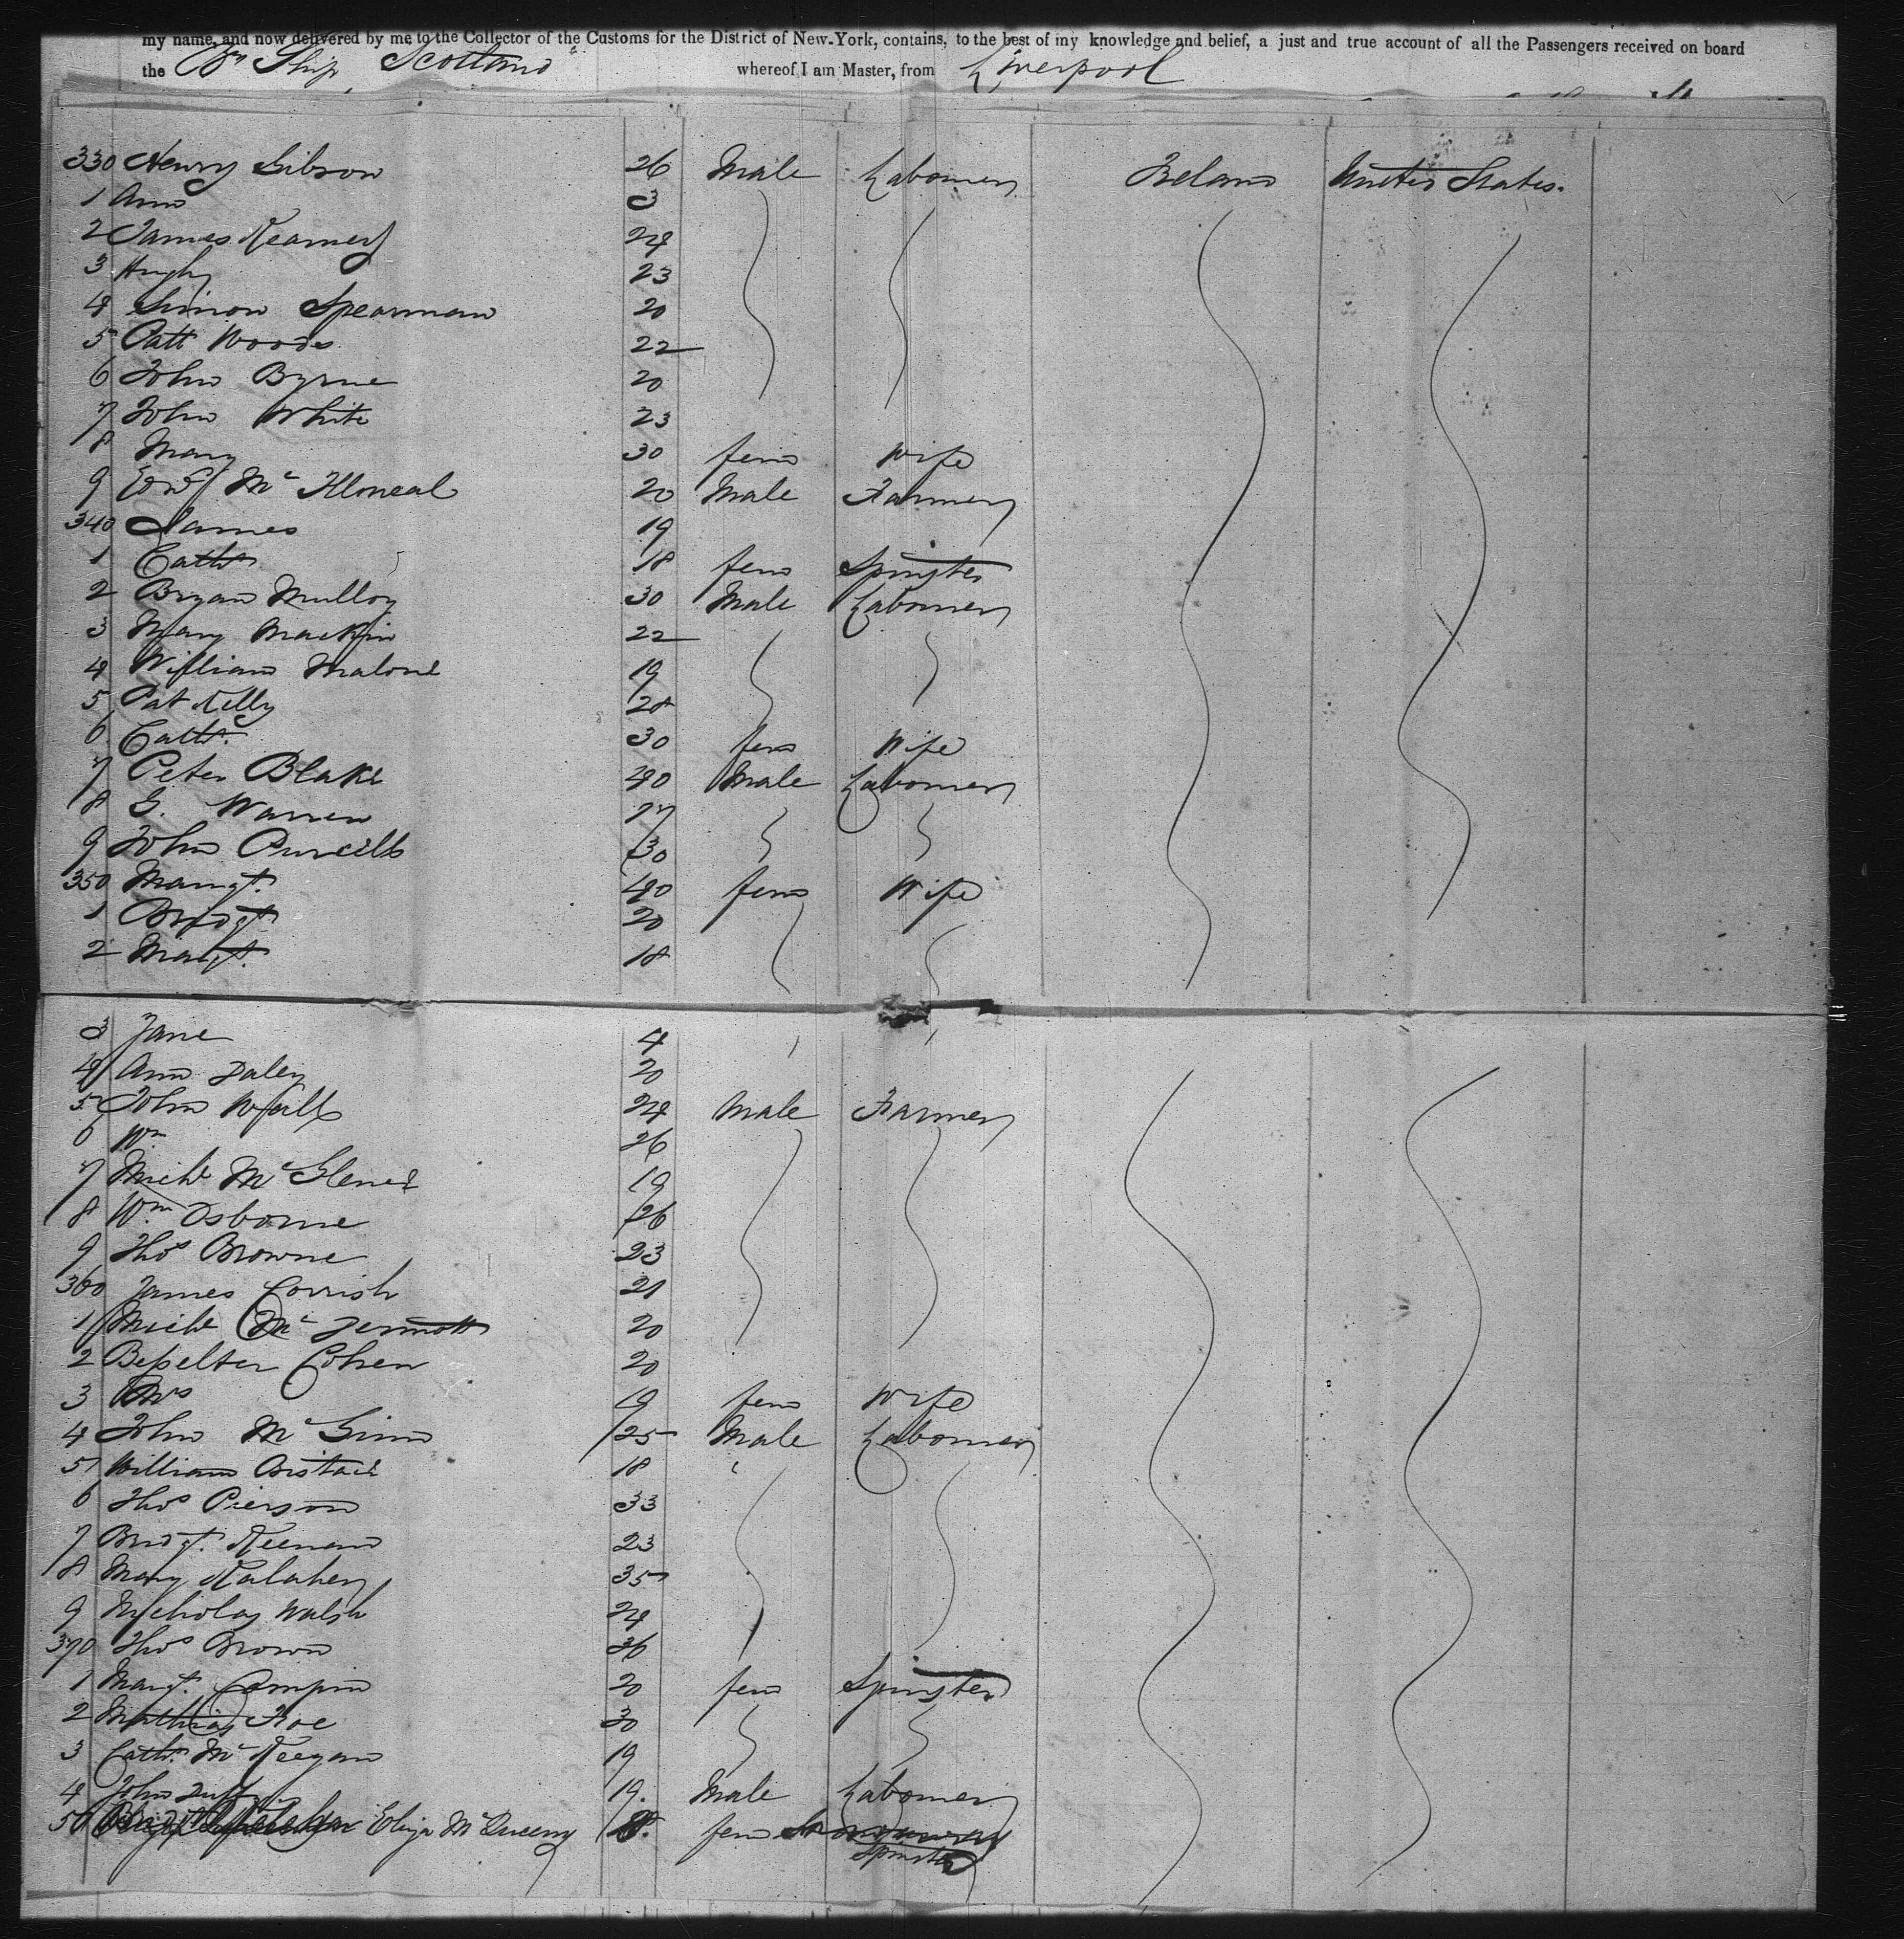 my name, and now delivered by me to the Collector of the Customs for the District of New-York, contains, to the best of my knowledge and belief, a just and true account of all the Passengers received on board
the Br Ship Scotland whereof I am Master, from Liverpool
330 Henry Gibson 26 Male Labourer Ireland United States.
1 Ann 3
2 James Kearney 24
3 Hugh 23
4 Simon Spearman 20
5 Patt Woods 22
6 John Byrne 20
7 John White 23
8 Mary 30 fem Wife
9 Edwd Mc Iloneal 20 Male Farmer
340 James 19
1 Cath 18 fem Spinster
2 Bryan Mulloy 30 Male Labourer
3 Mary Mackin 22
4 William Malone 19
5 Pat Kelly 28
6 Cath. 30 fem Wife
7 Peter Blake 40 Male Labourer
8 G. Warren 27
9 John Purcell 30
350 Margt. 40 fem Wife
1 Bridgt 20
2 Margt. 18
3 Jane 4
4 Ann Daley 20
5 John Wall 24 Male Farmer
6 Wm 26
7 Michl Mc 19
8 Wm. Osborne 26
9 Thos Browne 23
360 James Corrish 21
1 Michl Mc Dermott 20
2 Cohen 20
3 Mrs 19 fem Wife
4 John Mc Ginn 25 Male Labourer
5 William 18
6 Thos Pierson 33
7 Bridgt. Keenan 23
8 Mary Kalahey 35
9 Nicholas Walsh 24
370 Thos Brown 36
1 Margt. Campin 20 fem Spinster
2 Mathias Roe 30
3 Cath. Mc Keegan 19
4 John Duffy 19. Male Labourer
5 Eliza Mc Queeny 18. fem
Spinster